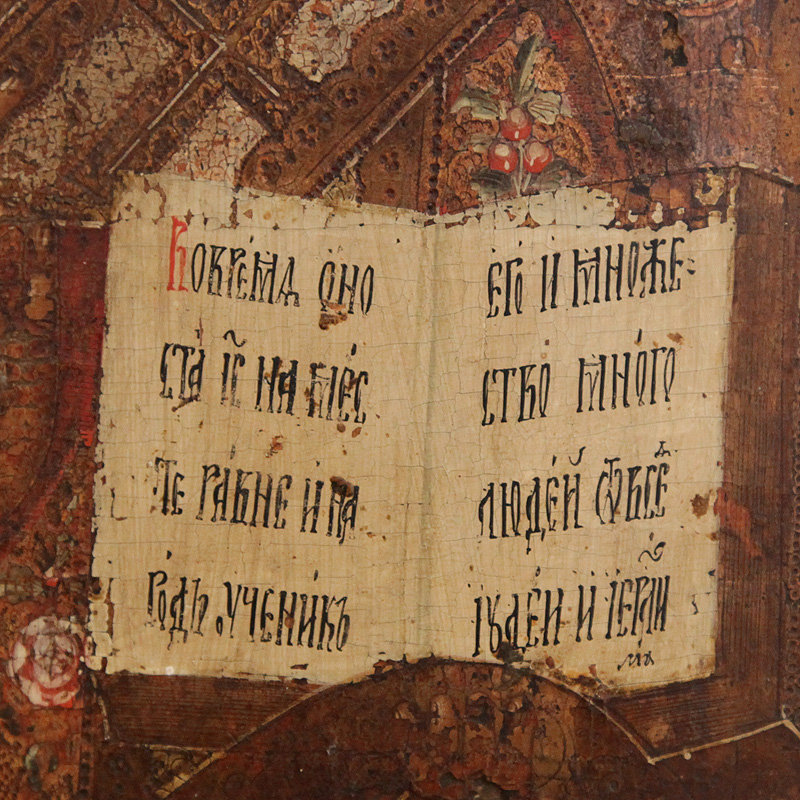 Во время оно
ста І҃с на мѣс
те равне и на
родъ ученикъ
его и множе-
ство много
людей ѿ всеѧ
Іꙋдеи и Іерꙋ҃